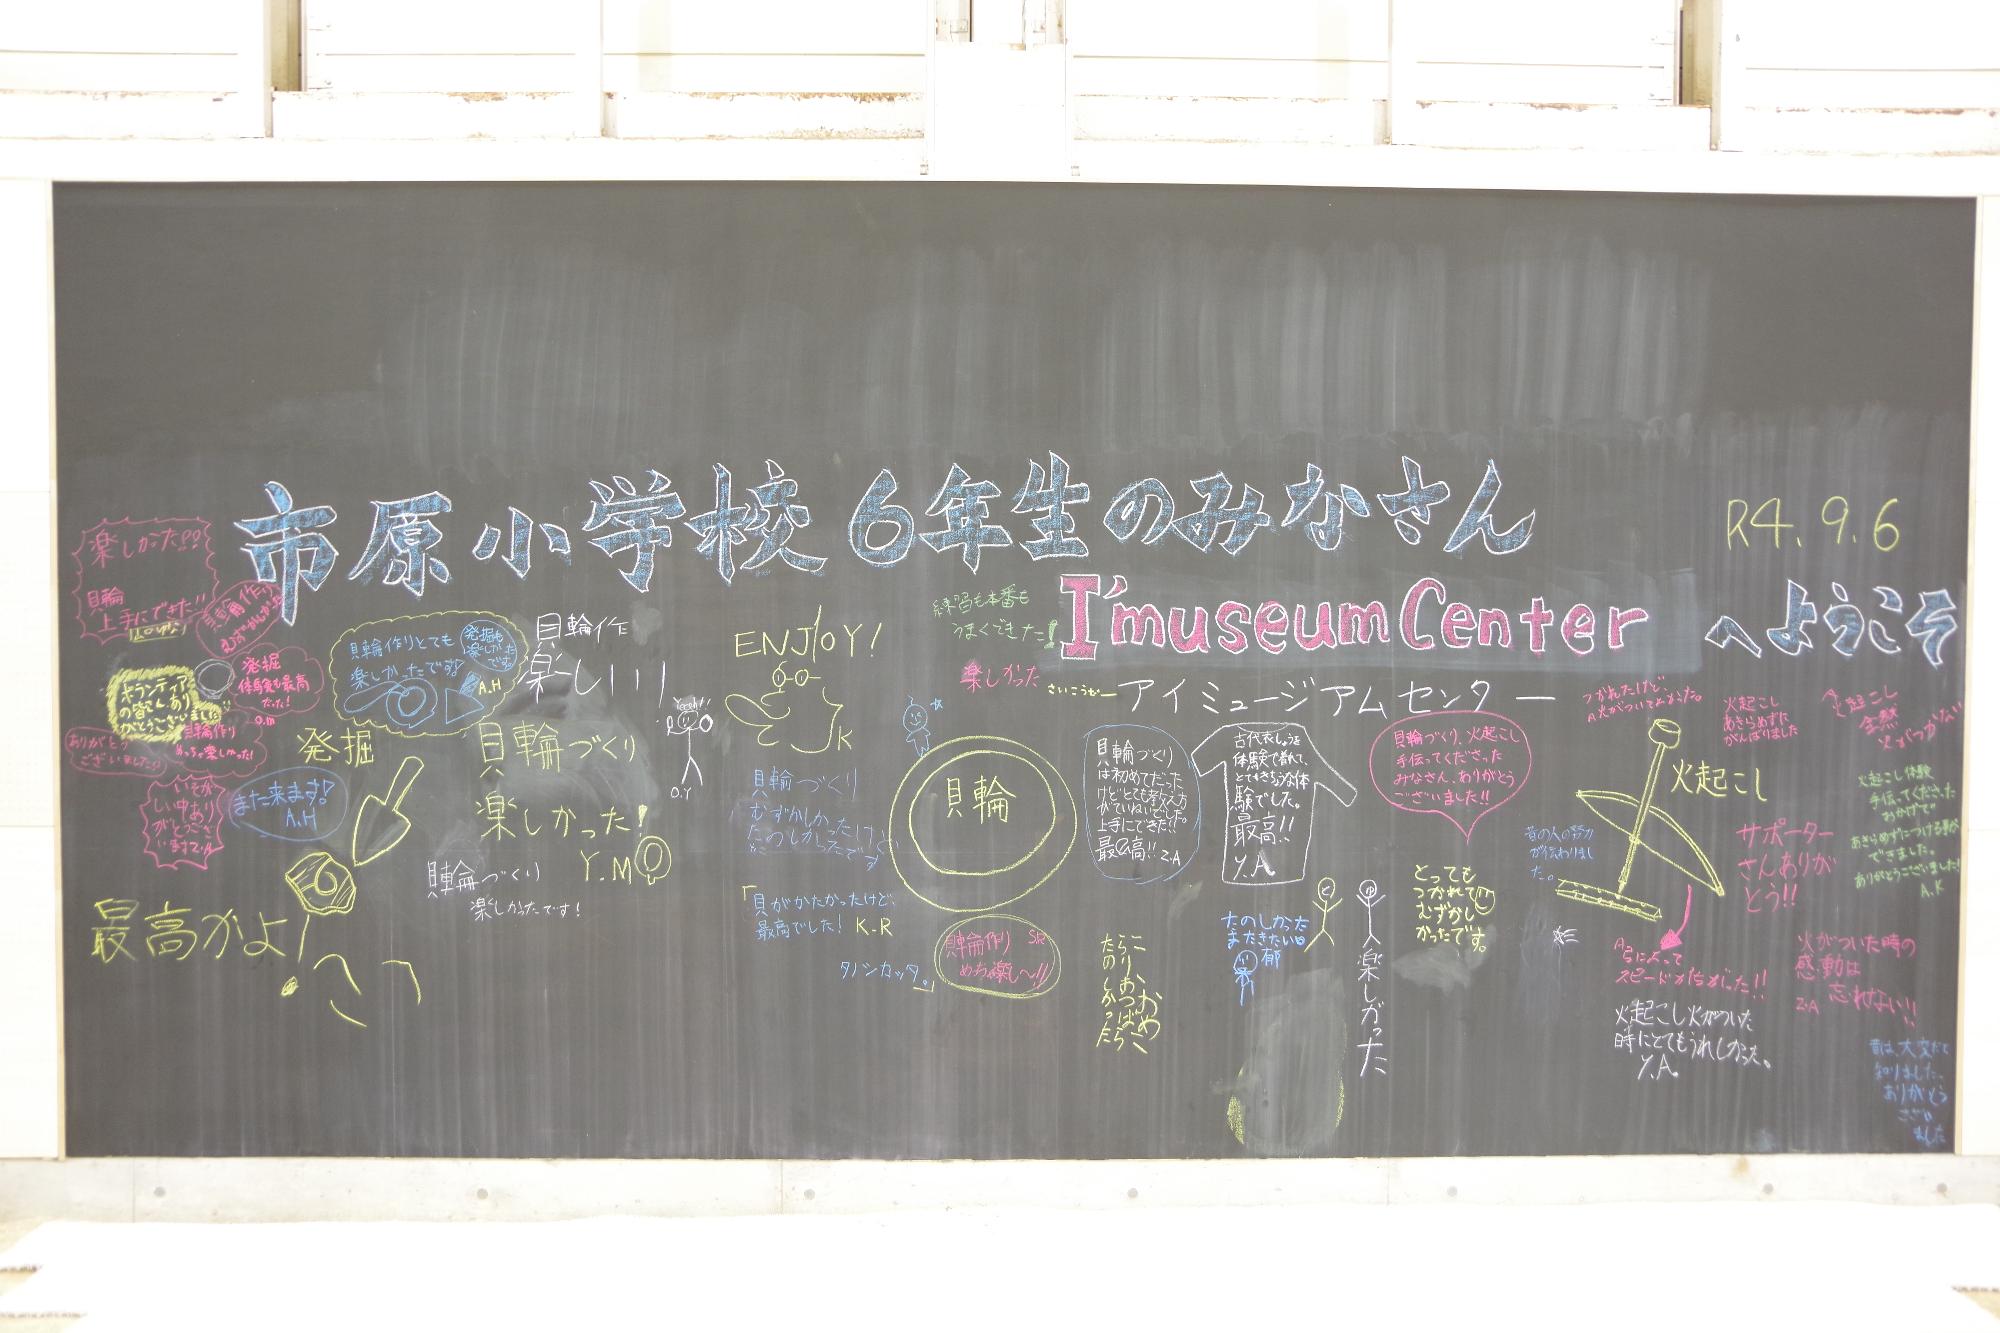 市原小学校6年生のみなさん
R4.9.6
I'museum Center
へようこそ
アイミュージアムセンター
楽しかった!!
貝輪
上手にできた!!
貝輪作り
発掘
体験も最高
だった!
O.M
ボランティア
の皆さんあり
がとうございました!!
貝輪作り
めっちゃ楽しかった!
ありがとう
ございました!!
いそが
しい中あり
がとうござ
います
貝輪作りとても
楽しかったです!
発掘も
楽しかった
です
A.H
発掘
また来ます!
A.H
最高かよ!
貝輪作
楽しい!!
貝輪づくり
楽しかった!
Y.M
貝輪づくり
楽しかったです!
Yeeah!!
O.Y
ENJOY!
K
貝輪づくり
むずかしかったけど
たのしかったです
「貝がかたかったけど、
最高でした! K-R
タノシカッタ。」
練習も本番も
うまくできた!
楽しかった
さいこうだー
貝輪
貝輪作り S.R
めちゃ楽しい~!!
貝輪づくり
は初めてだった
けどとても教え方
がていねいでした。
上手にできた!!
最高!! Z.A
古代衣しょうを
体験で着れて、
とてもきちょうな体
験でした。
最高!!
Y.A
貝輪づくり、火起こし
手伝ってくださった
みなさん、ありがとう
ございました!!
たのしかった
またきたい
郁
楽しかった
とっても
つかれて
むずかし
かったです。
つかれたけど、
火がついてよかった。
火起こし
あきらめずに
がんばりました
火起こし
全然
火がつかない
火起こし
昔の人の努力
が伝わりまし
た。
サポーター
さんありが
とう!!
火起こし体験
手伝ってくださった
おかげで
あきらめずにつける事が
できました。
ありがとうございました!
A.K
弓によって
スピードが上がった!!
火起こし火がついた
時にとてもうれしかった。
Y.A.
火がついた時の
感動は
忘れない!!
Z.A
昔は、大変だと
知りました、
ありがとう
ござい
ました